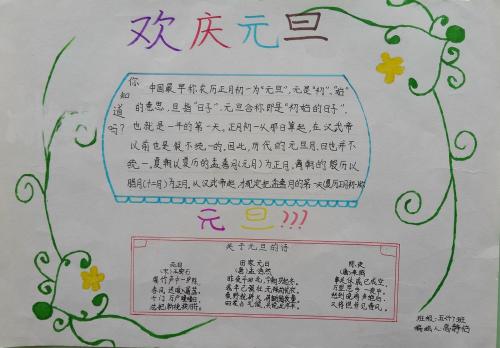 欢庆元旦
你知道吗?
中国最早称农历正月初一为“元旦”,元是“初”、“始”
的意思,旦指“日子”,元旦合称即是“初始的日子”,
也就是一年的第一天。正月初一从那日算起,在汉武帝
以前也是很不统一的,因此,历代的元旦月、日也并不
统一。夏朝以夏历的孟喜月(元月)为正月,商朝的殷历以
腊月(十二月)为正月,从汉武帝起,才规定把孟喜月的第一天(夏历正月初一
元旦???
关于元旦的诗
元日
(宋)王安石
爆竹声中一岁除,
春风送暖入屠苏。
千门万户曈曈日,
总把新桃换旧符。
田家元日
(唐)孟浩然
昨夜斗回北,今朝岁起东。
除夜
(唐)来鹄
事关休戚已成空,
万里思今一夜中。
愁到晓鸡声绝后,
又将憔悴见春风。
班级:五(1)班